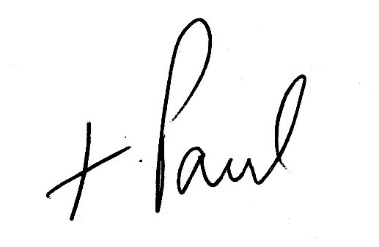 + Paul